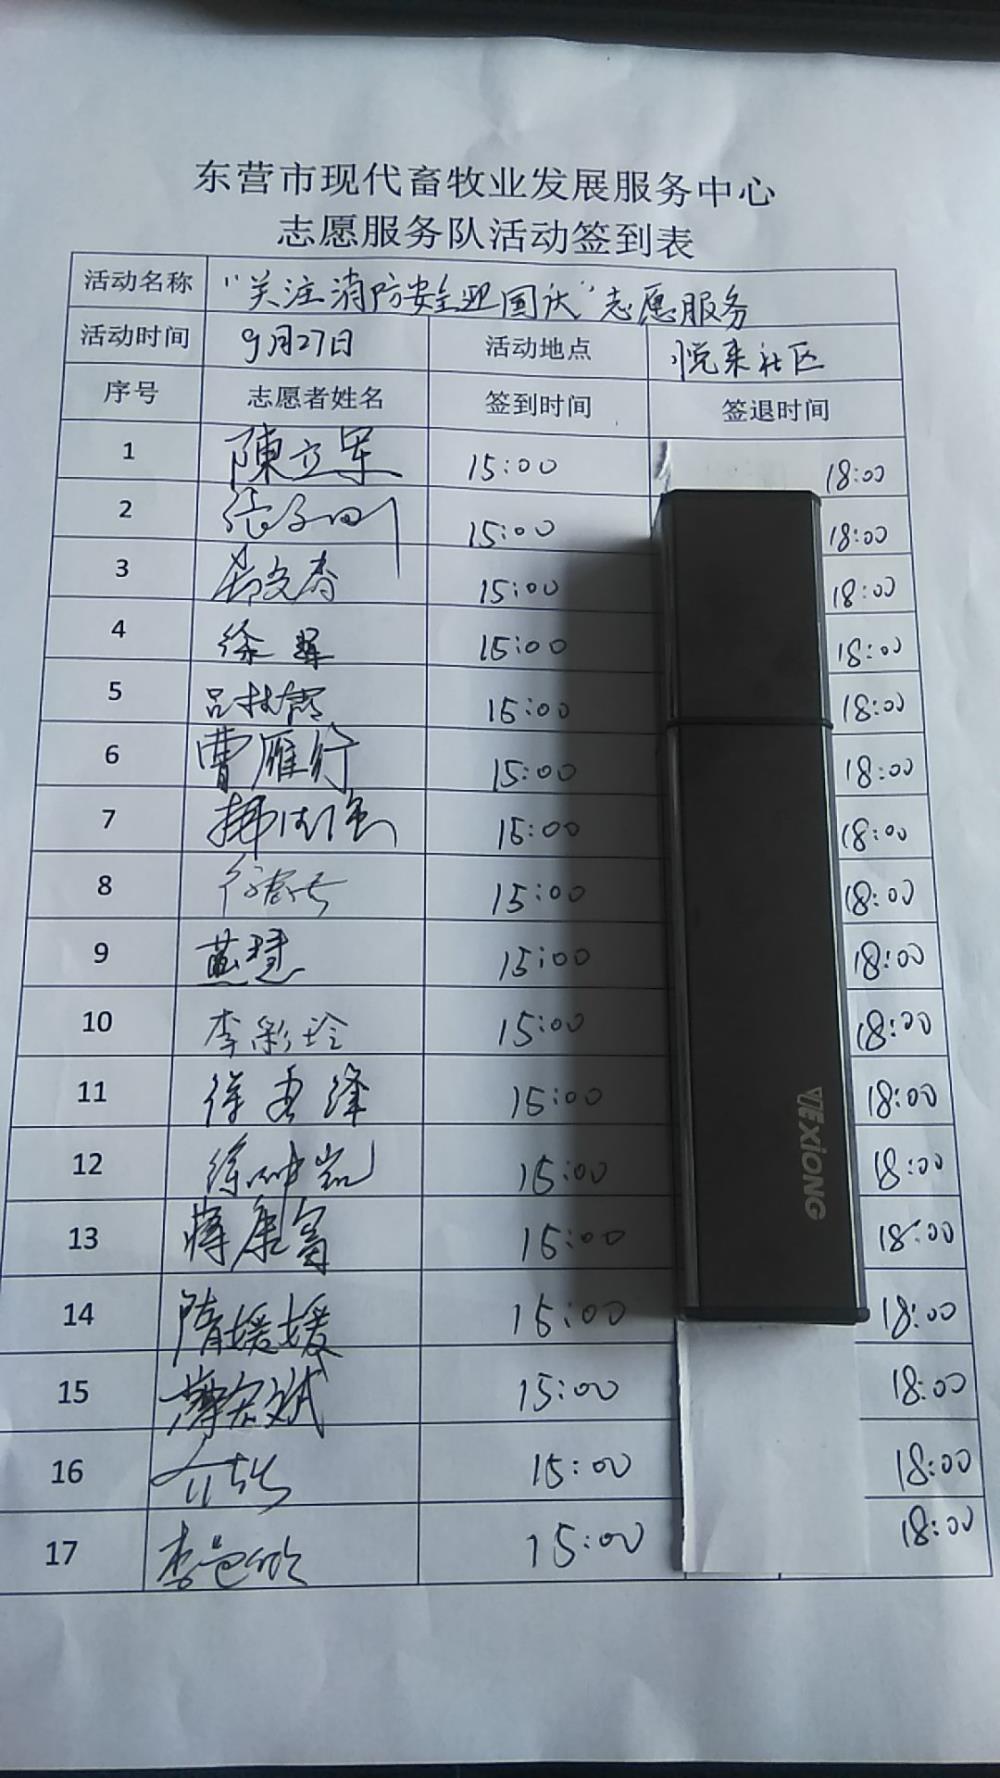 东营市现代畜牧业发展服务中心
志愿服务队活动签到表
活动名称 "关注消防安全迎国庆"志愿服务
活动时间 9月27日 活动地点 悦来社区
序号 志愿者姓名 签到时间 签退时间
1 陳立军 15:00 18:00
2 15:00 18:00
3 15:00 18:00
4 徐翠 15:00 18:00
5 15:00 18:00
6 曹雁行 15:00 18:00
7 15:00 18:00
8 15:00 18:00
9 15:00 18:00
10 李彩玲 15:00 18:00
11 15:00 18:00
12 15:00 18:00
13 蒋康富 15:00 18:00
14 隋媛媛 15:00 18:00
15 15:00 18:00
16 15:00 18:00
17 15:00 18:00
VEXiONG